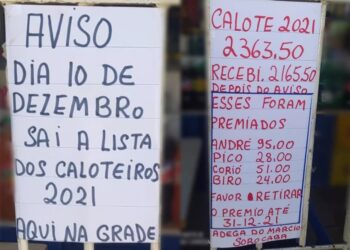 AVISO
DIA 10 DE
DEZEMBRO
SAI A LISTA
DOS CALOTEIROS
2021
AQUI NA GRADE
CALOTE 2021
2363.50
RECEBI. 2165.50
DEPOIS DO AVISO
ESSES FORAM
PREMIADOS
ANDRÉ 95.00
PICO 28.00
CORIO 51.00
BIRO 24.00
FAVOR RETIRAR
O PREMIO ATÉ
31-12-21
ADEGA DO MARCIO
SOROCABA